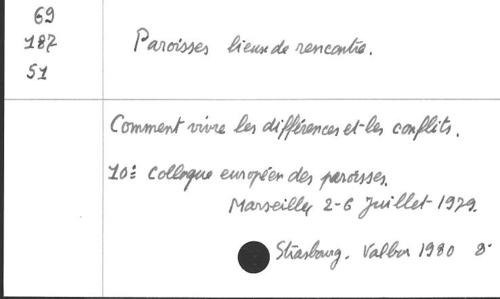 69
187
51
Paroisses lieux de rencontre.
Comment vivre les différences et les conflits.
10e Colloque européen des paroisses.
Marseille 2-6 Juillet 1979.
Strasbourg. Valblor 1980 8°